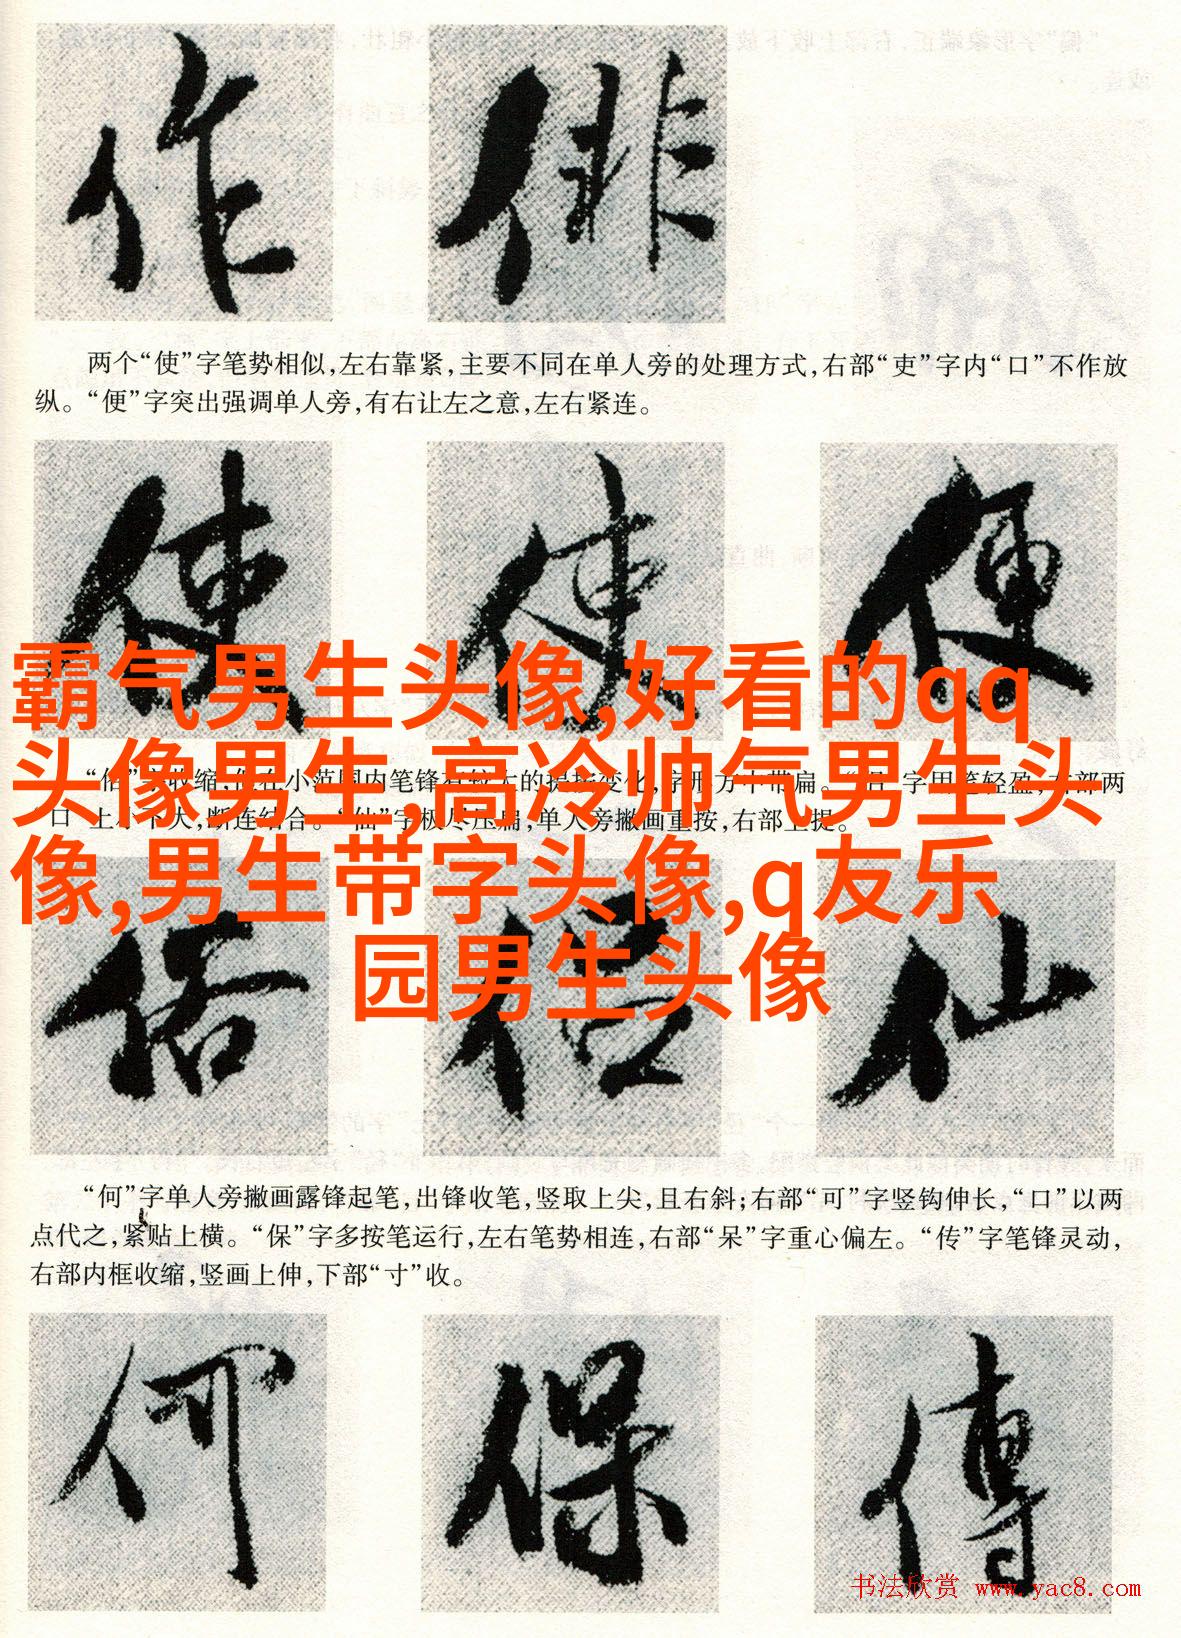 作 俳
两个“使”字笔势相似,左右靠紧,主要不同在单人旁的处理方式,右部“吏”字内“口”不作放
纵。“便”字突出强调单人旁,有右让左之意,左右紧连。
使 使 便
霸气男生头像,好看的qq
头像男生,高冷帅气男生头
像,男生带字头像,q友乐
园男生头像
字收缩,但在小范围内笔锋有较大的提按变化,字形方中带扁。 字用笔轻盈,右部两
口”上小下大,断连结合。“仙”字极尽压扁,单人旁撇画重按,右部上提。
俗 侣 仙
“何”字单人旁撇画露锋起笔,出锋收笔,竖取上尖,且右斜;右部“可”字竖钩伸长,“口”以两
点代之,紧贴上横。“保”字多按笔运行,左右笔势相连,右部“呆”字重心偏左。“传”字笔锋灵动,
右部内框收缩,竖画上伸,下部“寸”收。
何 保 傳
书法欣赏 www.yac8.com